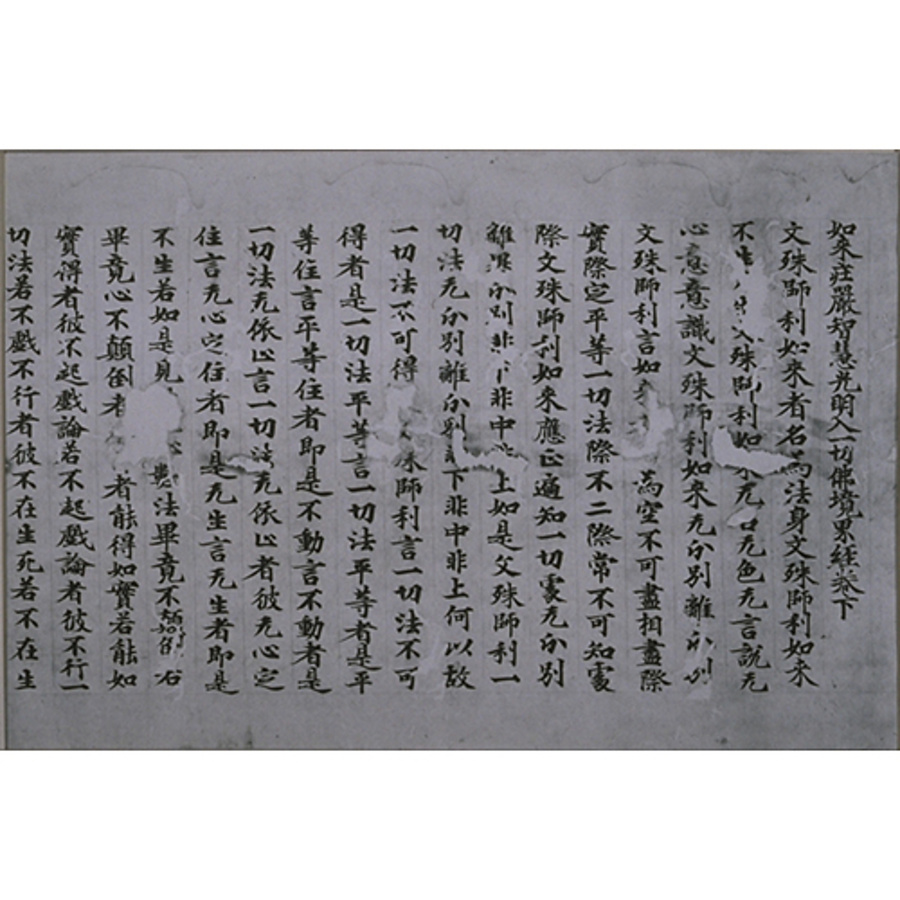 如来莊嚴智慧光明入一切佛境界經卷下
文殊師利如来者名為法身文殊師利如来
不生 殊師利如来无名无色无言說无
心意意識文殊師利如来无分別離分別
文殊師利言如来 為空不可盡相盡際
實際空平等一切法際不二際常不可知處
際文殊師利如来應正遍知一切處无分別
離 分別非下非中非上如是文殊師利一
切法无分別離分別 下非中非上何以故
一切法不可得 殊師利言一切法不可
得者是一切法平等言一切法平等者是平
等住言平等住者即是不動言不動者是
一切法无依止言一切法无依止者彼无心定
住言无心定住者即是无生言无生者即是
不生若如是見 數法畢竟不顛倒若
畢竟心不顛倒者 者能得如實若能如
實得者彼不起戲論若不起戲論者彼不行一
切法若不戲不行者彼不在生死若不在生